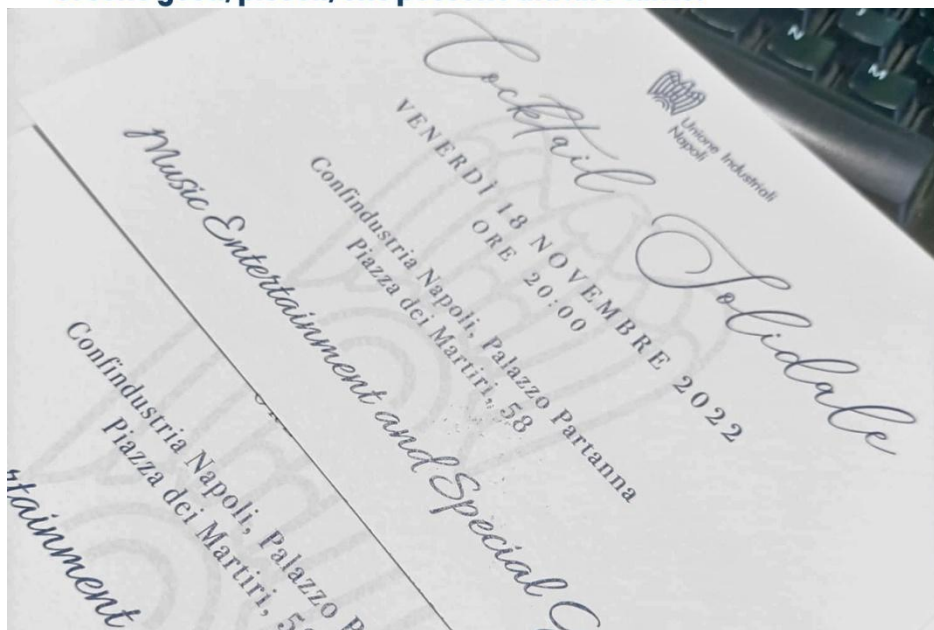 Unione Industriali
Napoli
Cocktail Solidale
VENERDÌ 18 NOVEMBRE 2022
ORE 20:00
Confindustria Napoli, Palazzo Partanna
Piazza dei Martiri, 58
Music Entertainment and Special
Confindustria Napoli, Palazzo
Piazza dei Martiri,
tainment
N
M